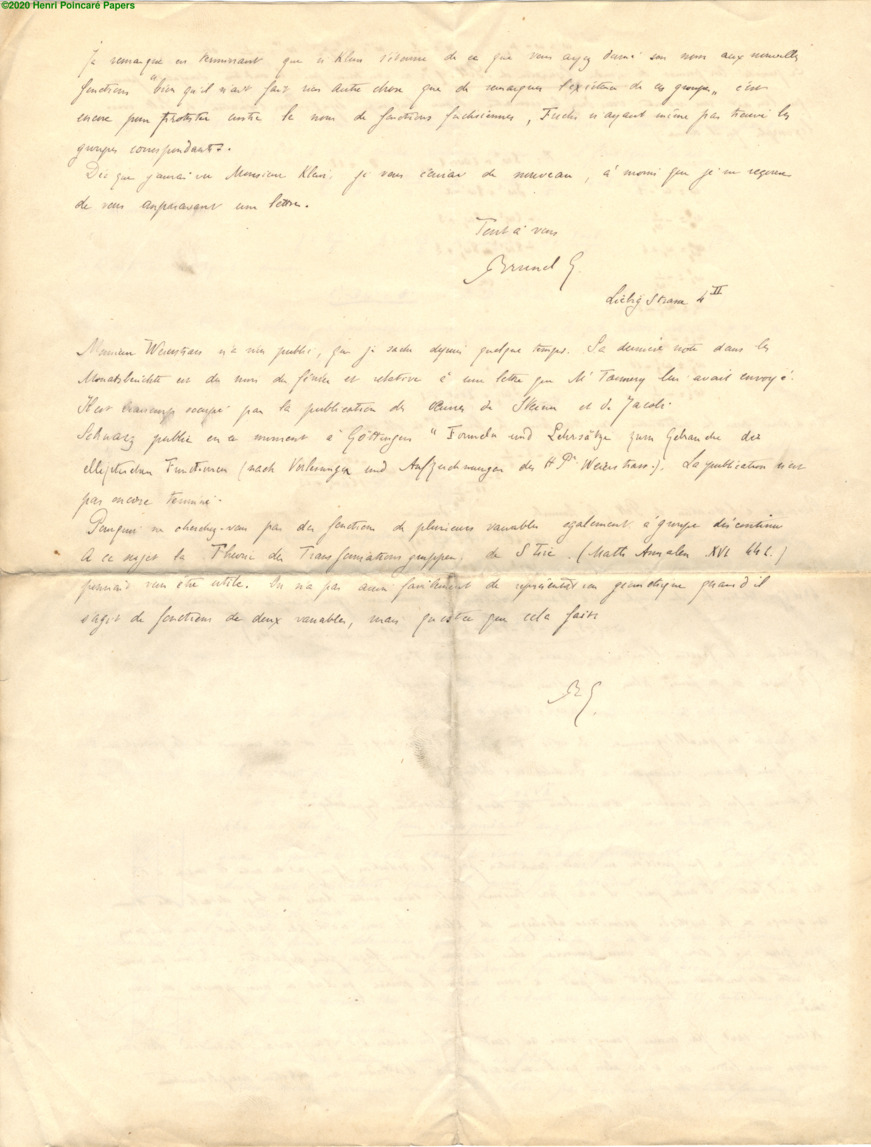 ©2020 Henri Poincaré Papers
Je remarque en terminant que si Klein s'étonne de ce que vous ayez donné son nom aux nouvelles
fonctions "bien qu'il n'ait fait rien autre chose que de remarquer l'existence de ces groupes„ c'est
encore pour protester contre le nom de fonctions fuchsiennes, Fuchs n'ayant même pas trouvé les
groupes correspondants.
Dès que j'aurai vu Monsieur Klein, je vous écrirai de nouveau, à moins que je ne reçoive
de vous auparavant une lettre.
Tout à vous
Brunel G.
Liebig Strasse 4 II
Monsieur Weierstrass n'a rien publié, que je sache depuis quelque temps. Sa dernière note dans les
Monatsberichte est du mois de février et relative à une lettre que Mr Tannery lui avait envoyé.
Il est beaucoup occupé par la publication des œuvres de Steiner et de Jacobi.
Schwarz publie en ce moment à Göttingen "Formeln und Lehrsätze zum Gebrauche der
elliptischen Functionen (nach Vorlesungen und Aufzeichnungen des H Pr Weierstrass.). La publication n'est
pas encore terminé.
Pourquoi ne cherchez-vous pas des fonctions de plusieurs variables également à groupe discontinu
A ce sujet la Theorie der Transformationsgruppen de S Lie. (Math Annalen XVI 441.)
pourrait vous être utile. On n'a pas aussi facilement de représentation géométrique quand il
s'agit de fonctions de deux variables, mais qu'est ce que cela fait?
B G.